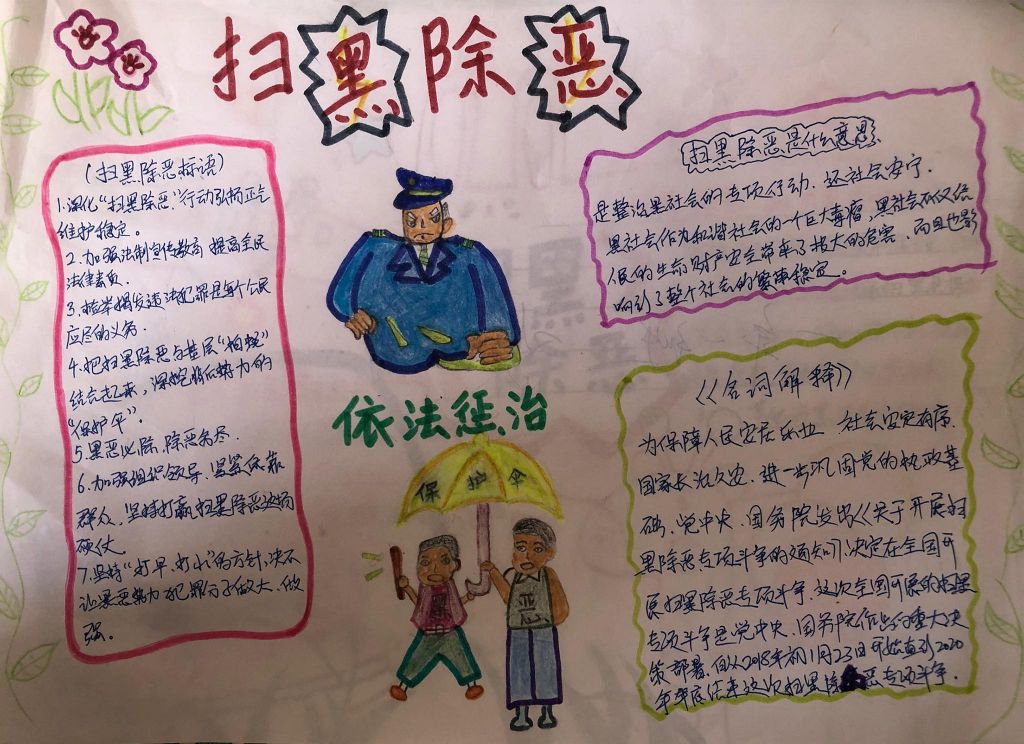 扫黑除恶
(扫黑除恶标语)
1.深化“扫黑除恶”行动弘扬正气
维护稳定。
2.加强法制宣传教育 提高全民
法律素质.
3.检举揭发违法犯罪是每个公民
应尽的义务.
4.把扫黑除恶与基层“拍蝇”
结合起来，深挖 势力的
“保护伞”.
5.黑恶必除,除恶务尽.
6.加强组织领导,紧紧依靠
群众,坚持打赢扫黑除恶这场
硬仗
7.坚持“打早、打小”的方针,决不
让黑恶势力犯罪分子做大、做
强。
依法惩治
保护伞
黑
恶
扫黑除恶是什么意思
是整治黑社会的专项行动,还社会安宁.
黑社会作为和谐社会的一个巨大毒瘤,黑社会不仅给
人民的生命财产安全带来了极大的危害、而且也影
响到了整个社会的 稳定。
《名词解释》
为保障人民安居乐业 社会安定有序.
国家长治久安,进一步巩固党的执政基
础,党中央、国务院发出《关于开展扫
黑除恶专项斗争的通知》决定在全国开
展扫黑除恶专项斗争,这次全国开展的扫黑
专项斗争是党中央、国务院作出的重大决
策部署,自从2018年初1月23日开始直到2020
年年底结束这次扫黑除恶专项斗争.